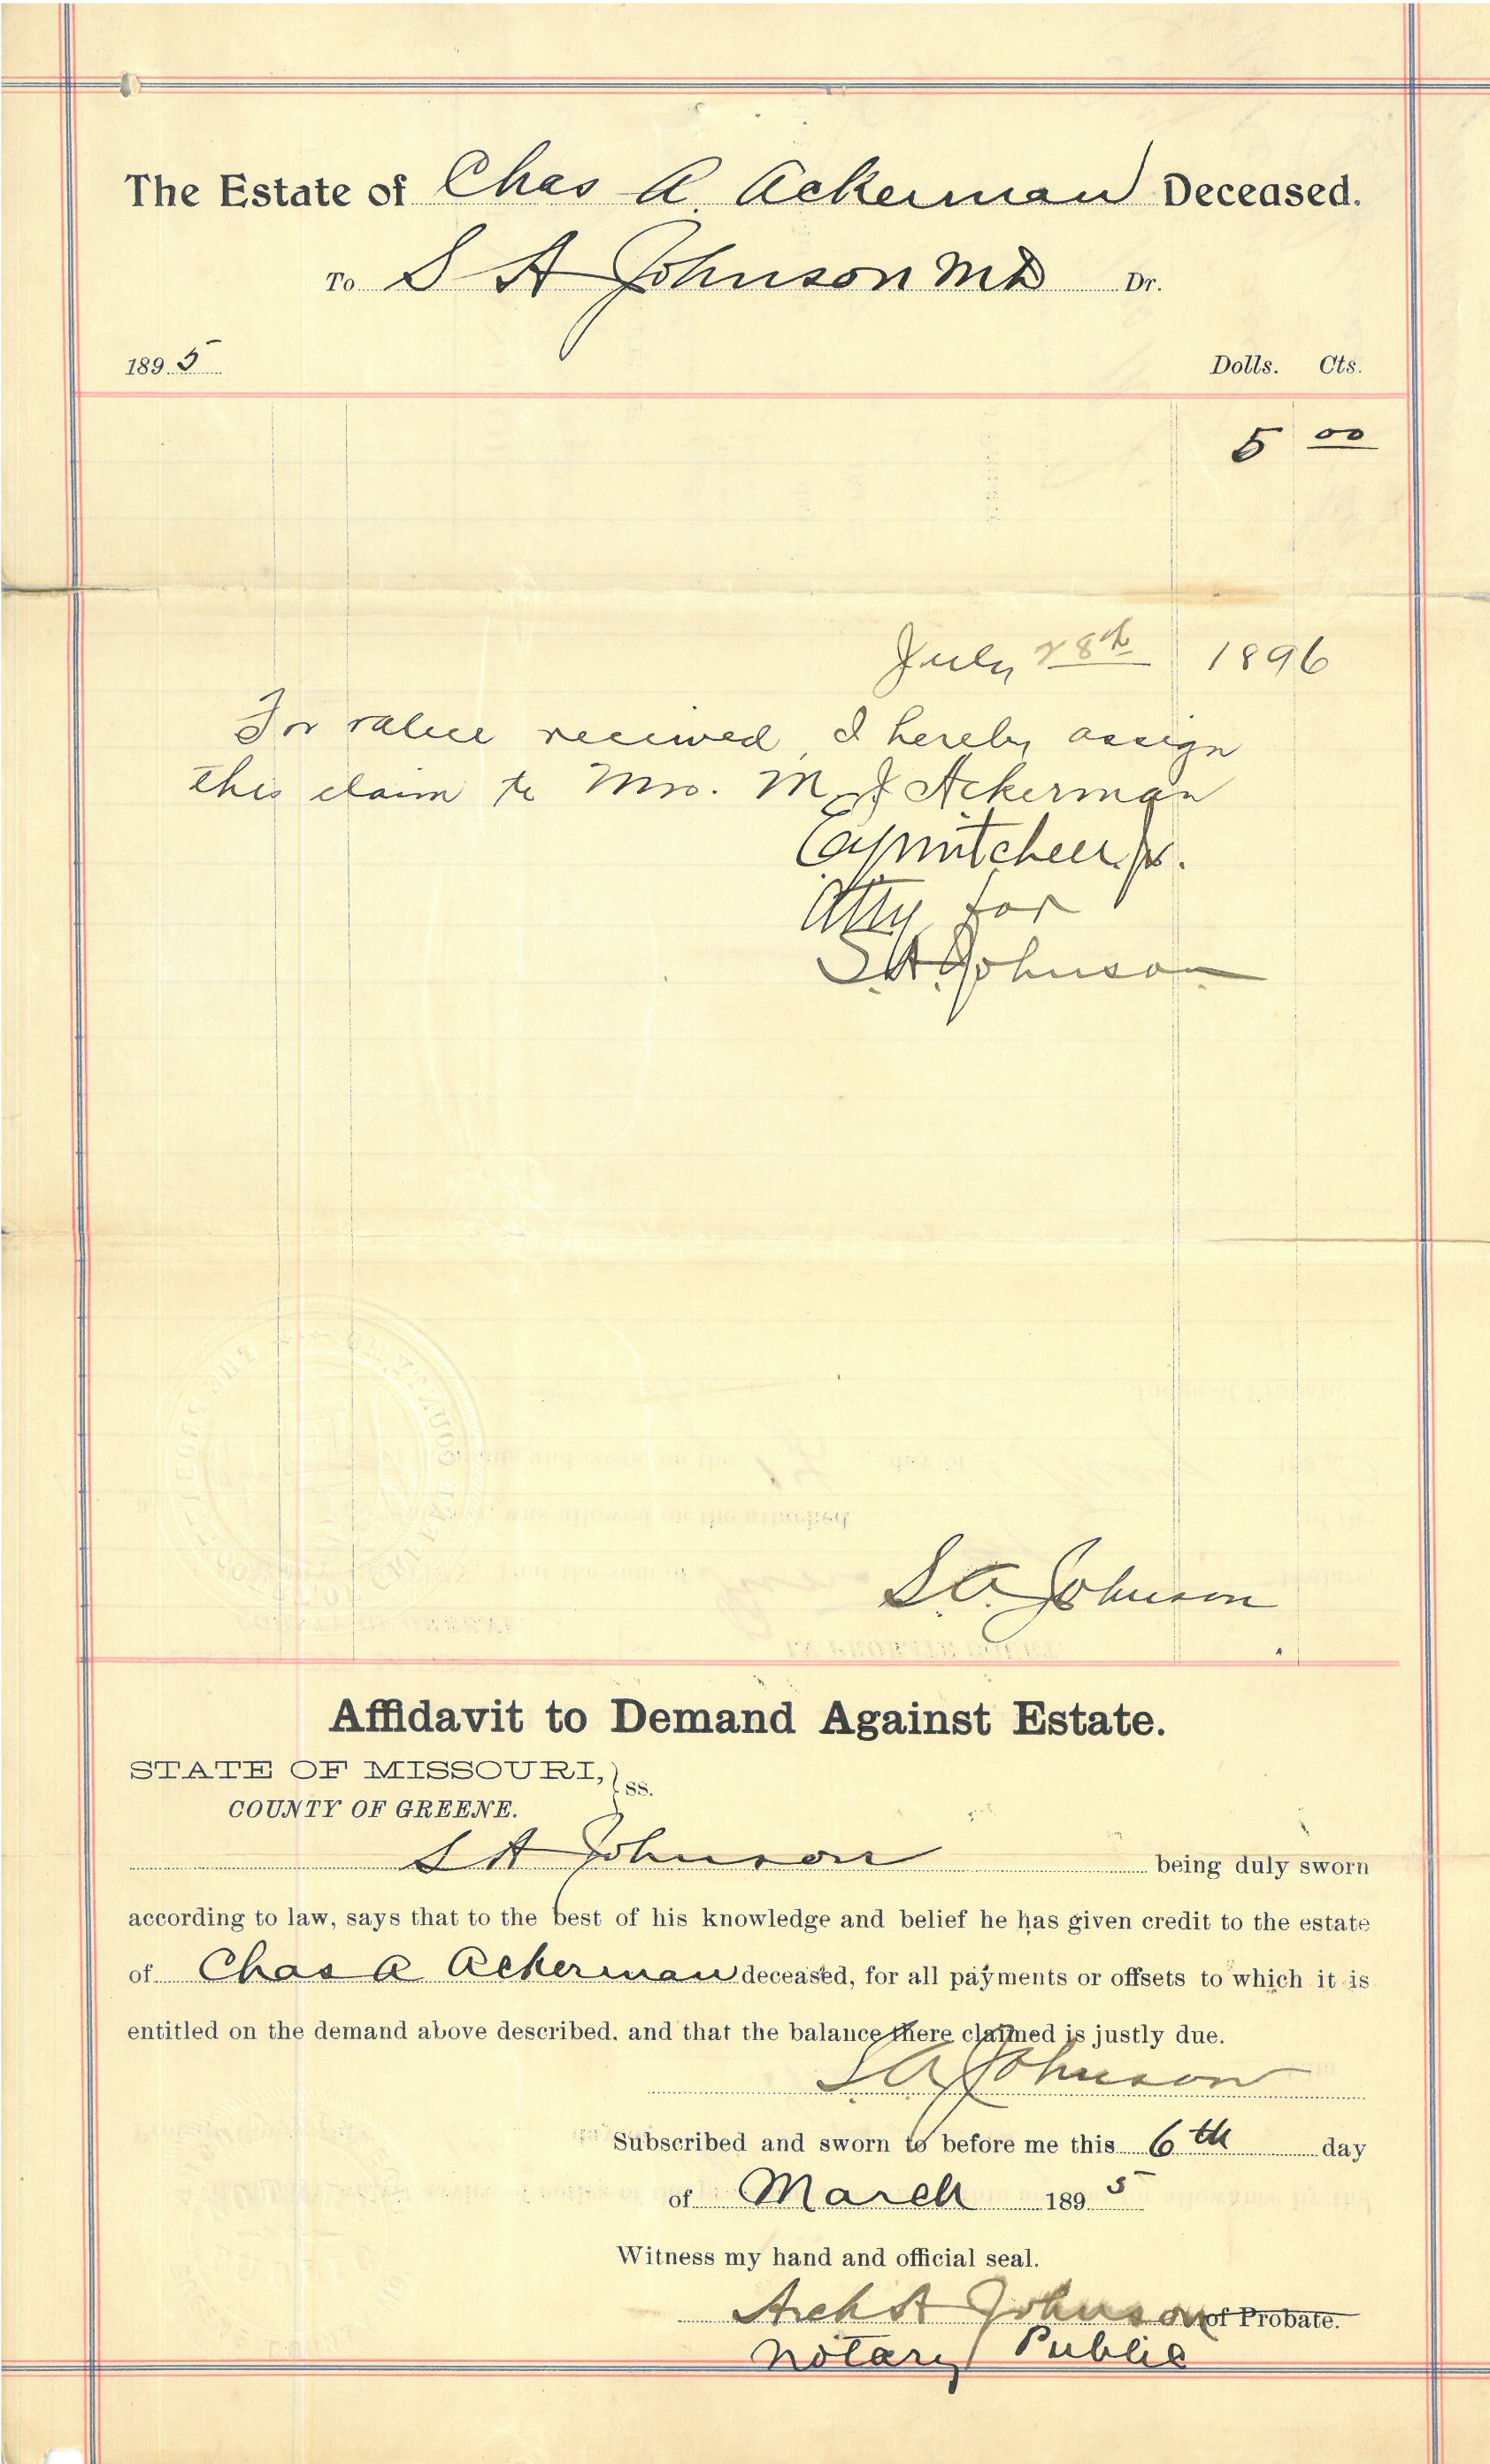 The Estate of Chas A. Ackerman Deceased.
To S A Johnson MD Dr.
1895 Dolls. Cts.
5 00
July 28th 1896
For value received, I hereby assign
this claim to Mrs. M J Ackerman
Jr.
Atty for
S.A. Johnson
S.A. Johnson
Affidavit to Demand Against Estate.
STATE OF MISSOURI, } ss.
COUNTY OF GREENE.
S A Johnson being duly sworn
according to law, says that to the best of his knowledge and belief he has given credit to the estate
of Chas A Ackerman deceased, for all payments or offsets to which it is
entitled on the demand above described, and that the balance there claimed is justly due.
S.A. Johnson
Subscribed and sworn to before me this 6th day
of March 1895
Witness my hand and official seal.
Arch A Johnson of Probate.
Notary Public